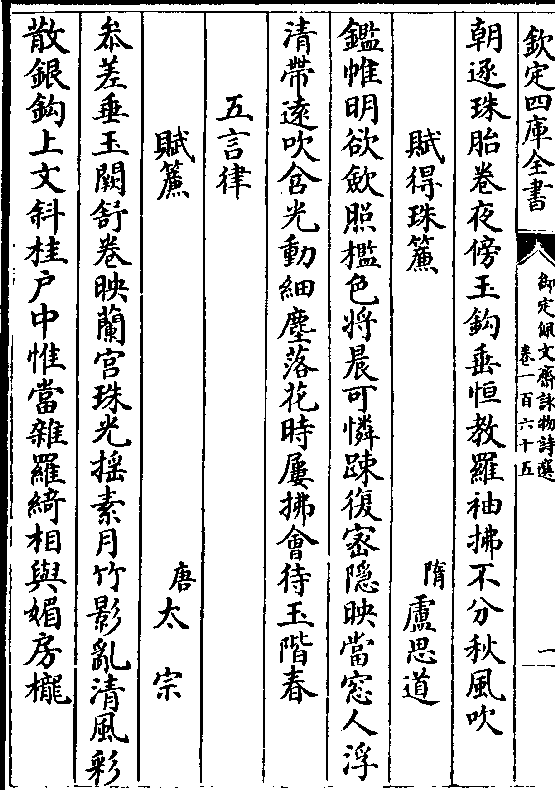 欽定四庫全書
御定佩文齋詠物詩選
卷一百六十五
一
朝逐珠胎卷夜傍玉鈎垂恒教羅袖拂不分秋風吹
賦得珠簾
隋盧思道
鑑帷明欲歛照檻色將晨可憐踈復密隠映當窓人浮
清帶遠吹含光動細塵落花時屢拂會待玉階春
五言律
賦簾
唐太宗
叅差垂玉闕舒卷映蘭宫珠光揺素月竹影亂清風彩
散銀鈎上文斜桂户中惟當雜羅綺相與媚房櫳